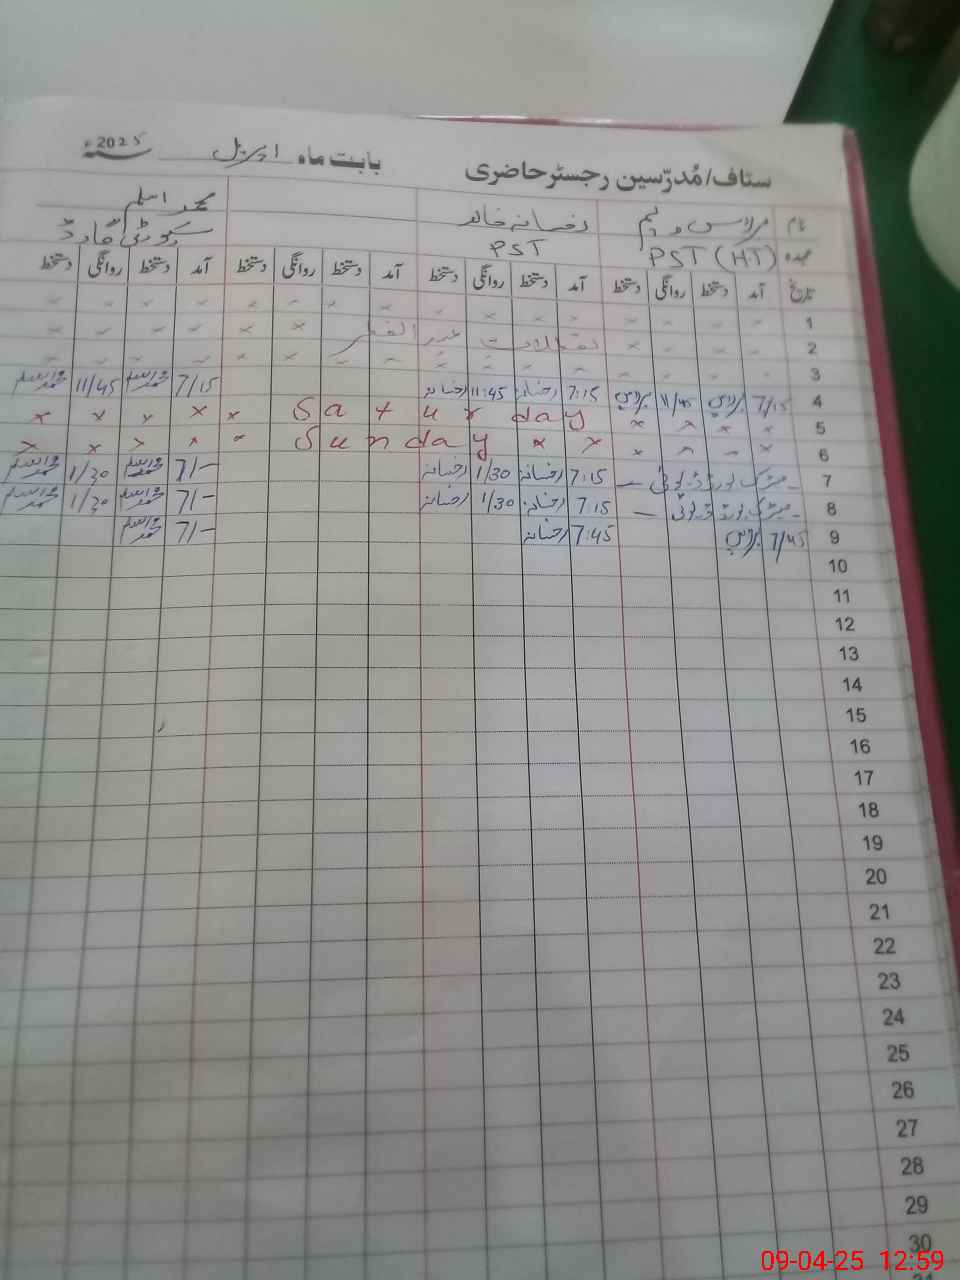 ستاف/مُدرّسین رجسٹر حاضری بابت ماہ اپریل سنہ 2025ء
نام رخسانہ محمد اسلم
عہدہ PST (HT) PST سکیورٹی گارڈ
تاریخ آمد دستخط روانگی دستخط آمد دستخط روانگی دستخط آمد دستخط روانگی دستخط آمد دستخط روانگی دستخط
1
2 تعطیلات عید الفطر
3
4 7/15 11/45 7:15 رخسانہ 11:45 رخسانہ 7/15 محمد اسلم 11/45 محمد اسلم
5 Saturday
6 Sunday
7 میٹرک بورڈ ڈیوٹی 7:15 رخسانہ 1/30 رخسانہ 7/- محمد اسلم 1/30 محمد اسلم
8 میٹرک بورڈ ڈیوٹی 7:15 رخسانہ 1/30 رخسانہ 7/- محمد اسلم 1/30 محمد اسلم
9 7/45 7:45 رخسانہ 7/- محمد اسلم
10
11
12
13
14
15
16
17
18
19
20
21
22
23
24
25
26
27
28
29
30
09-04-25 12:59